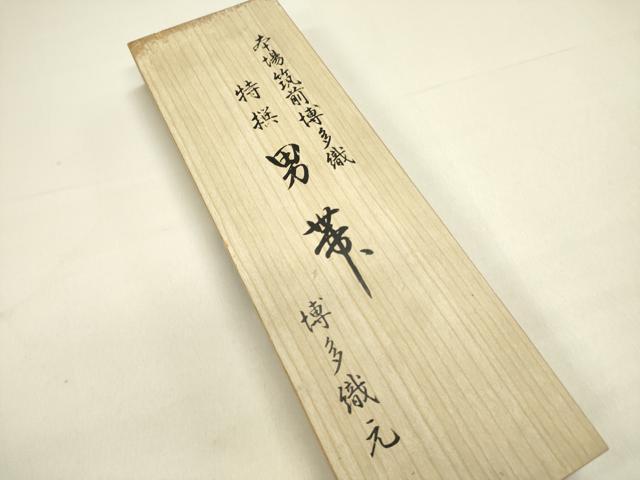 本場筑前博多織
特撰
男帯
博多織元